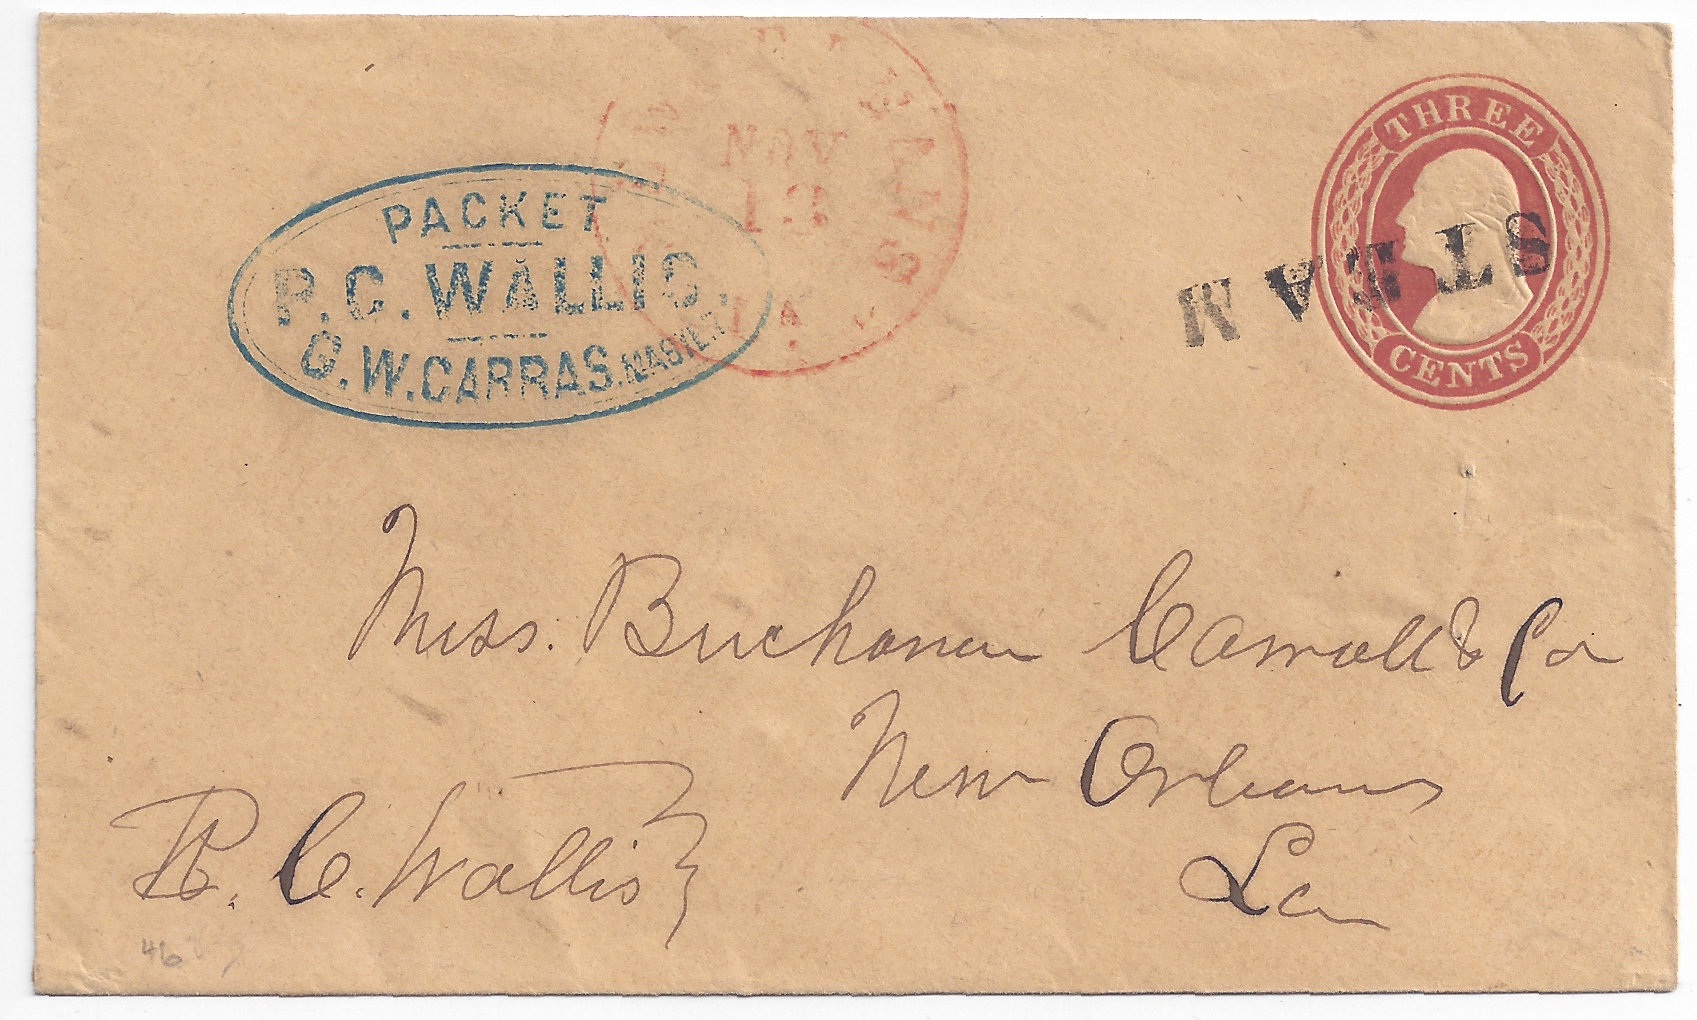 PACKET
P.C. WALLIS.
G.W. CARRAS. MASTER
NEW ORLEANS
NOV
13
LA.
THREE
CENTS
STEAM
Mess. Buchanan Carroll & Co
New Orleans
La
P. C. Wallis
46